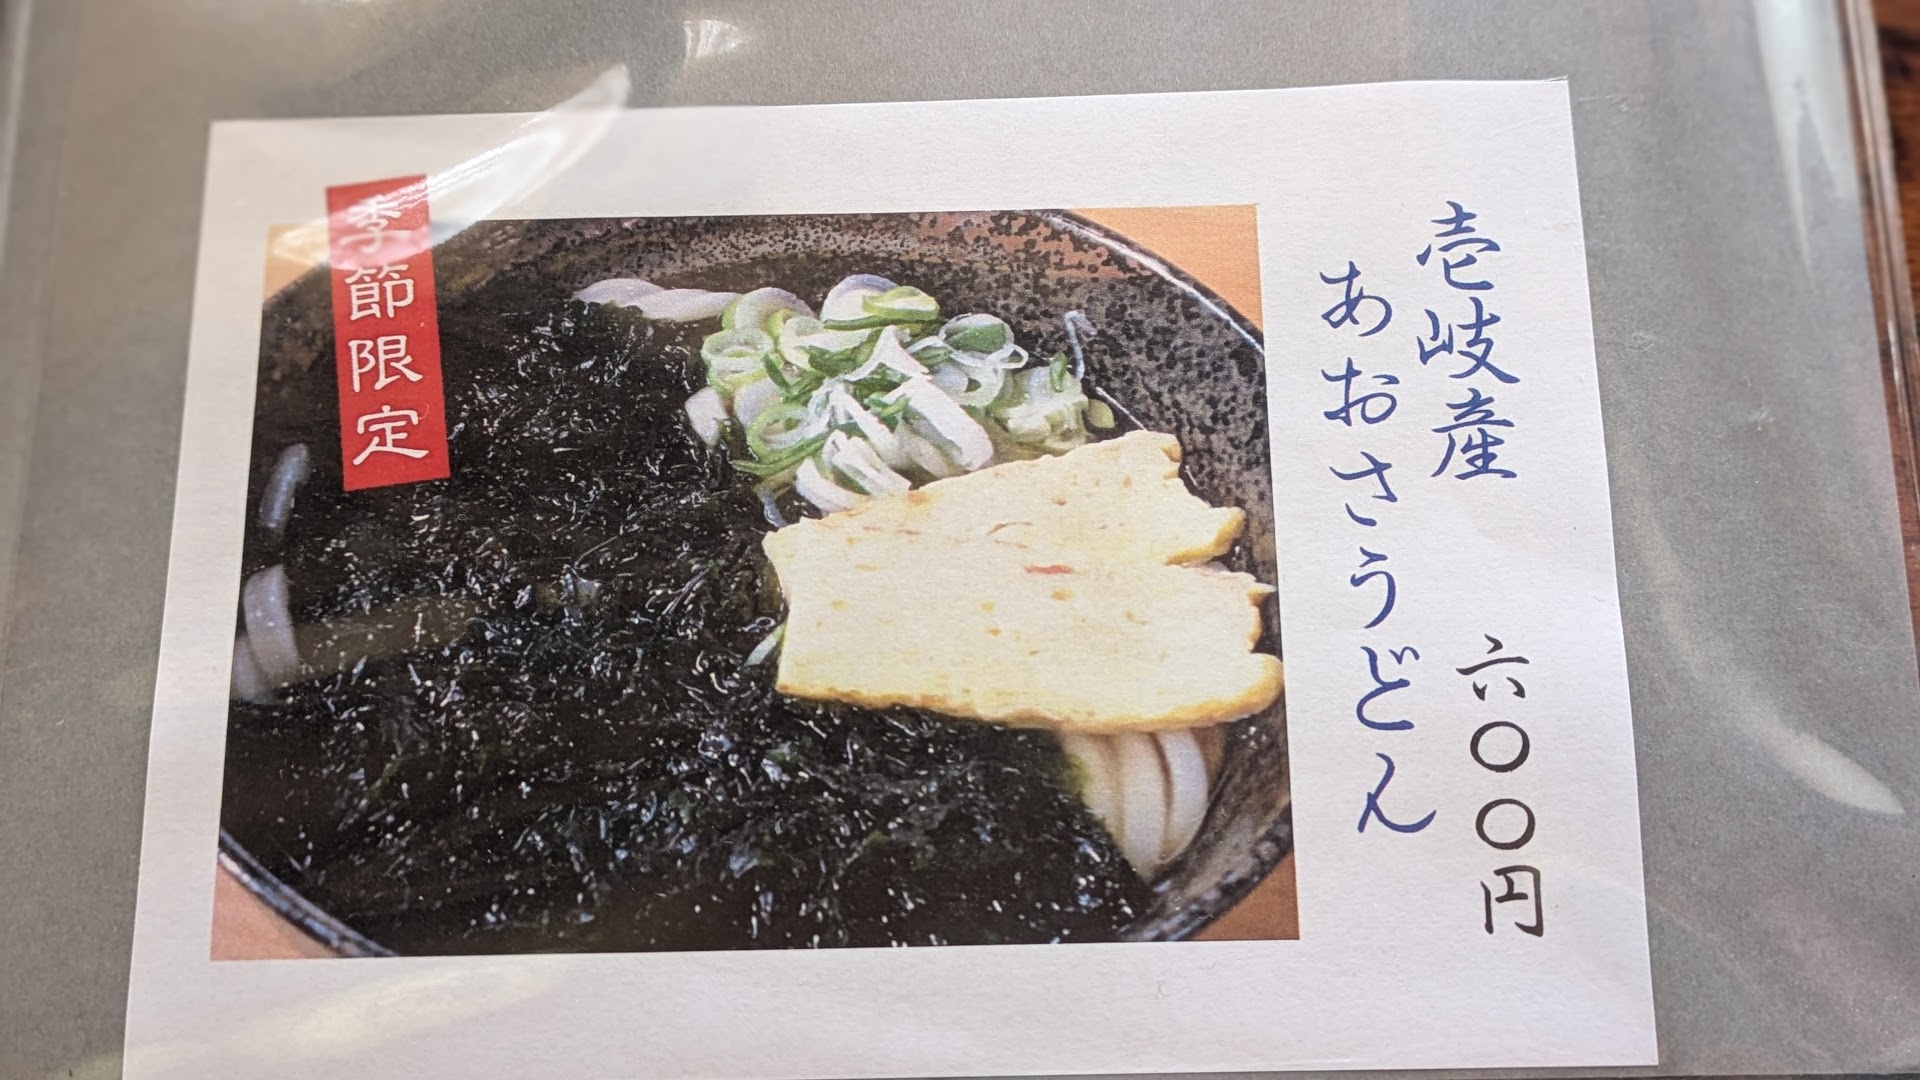 壱岐産
あおさうどん
六〇〇円
季節限定